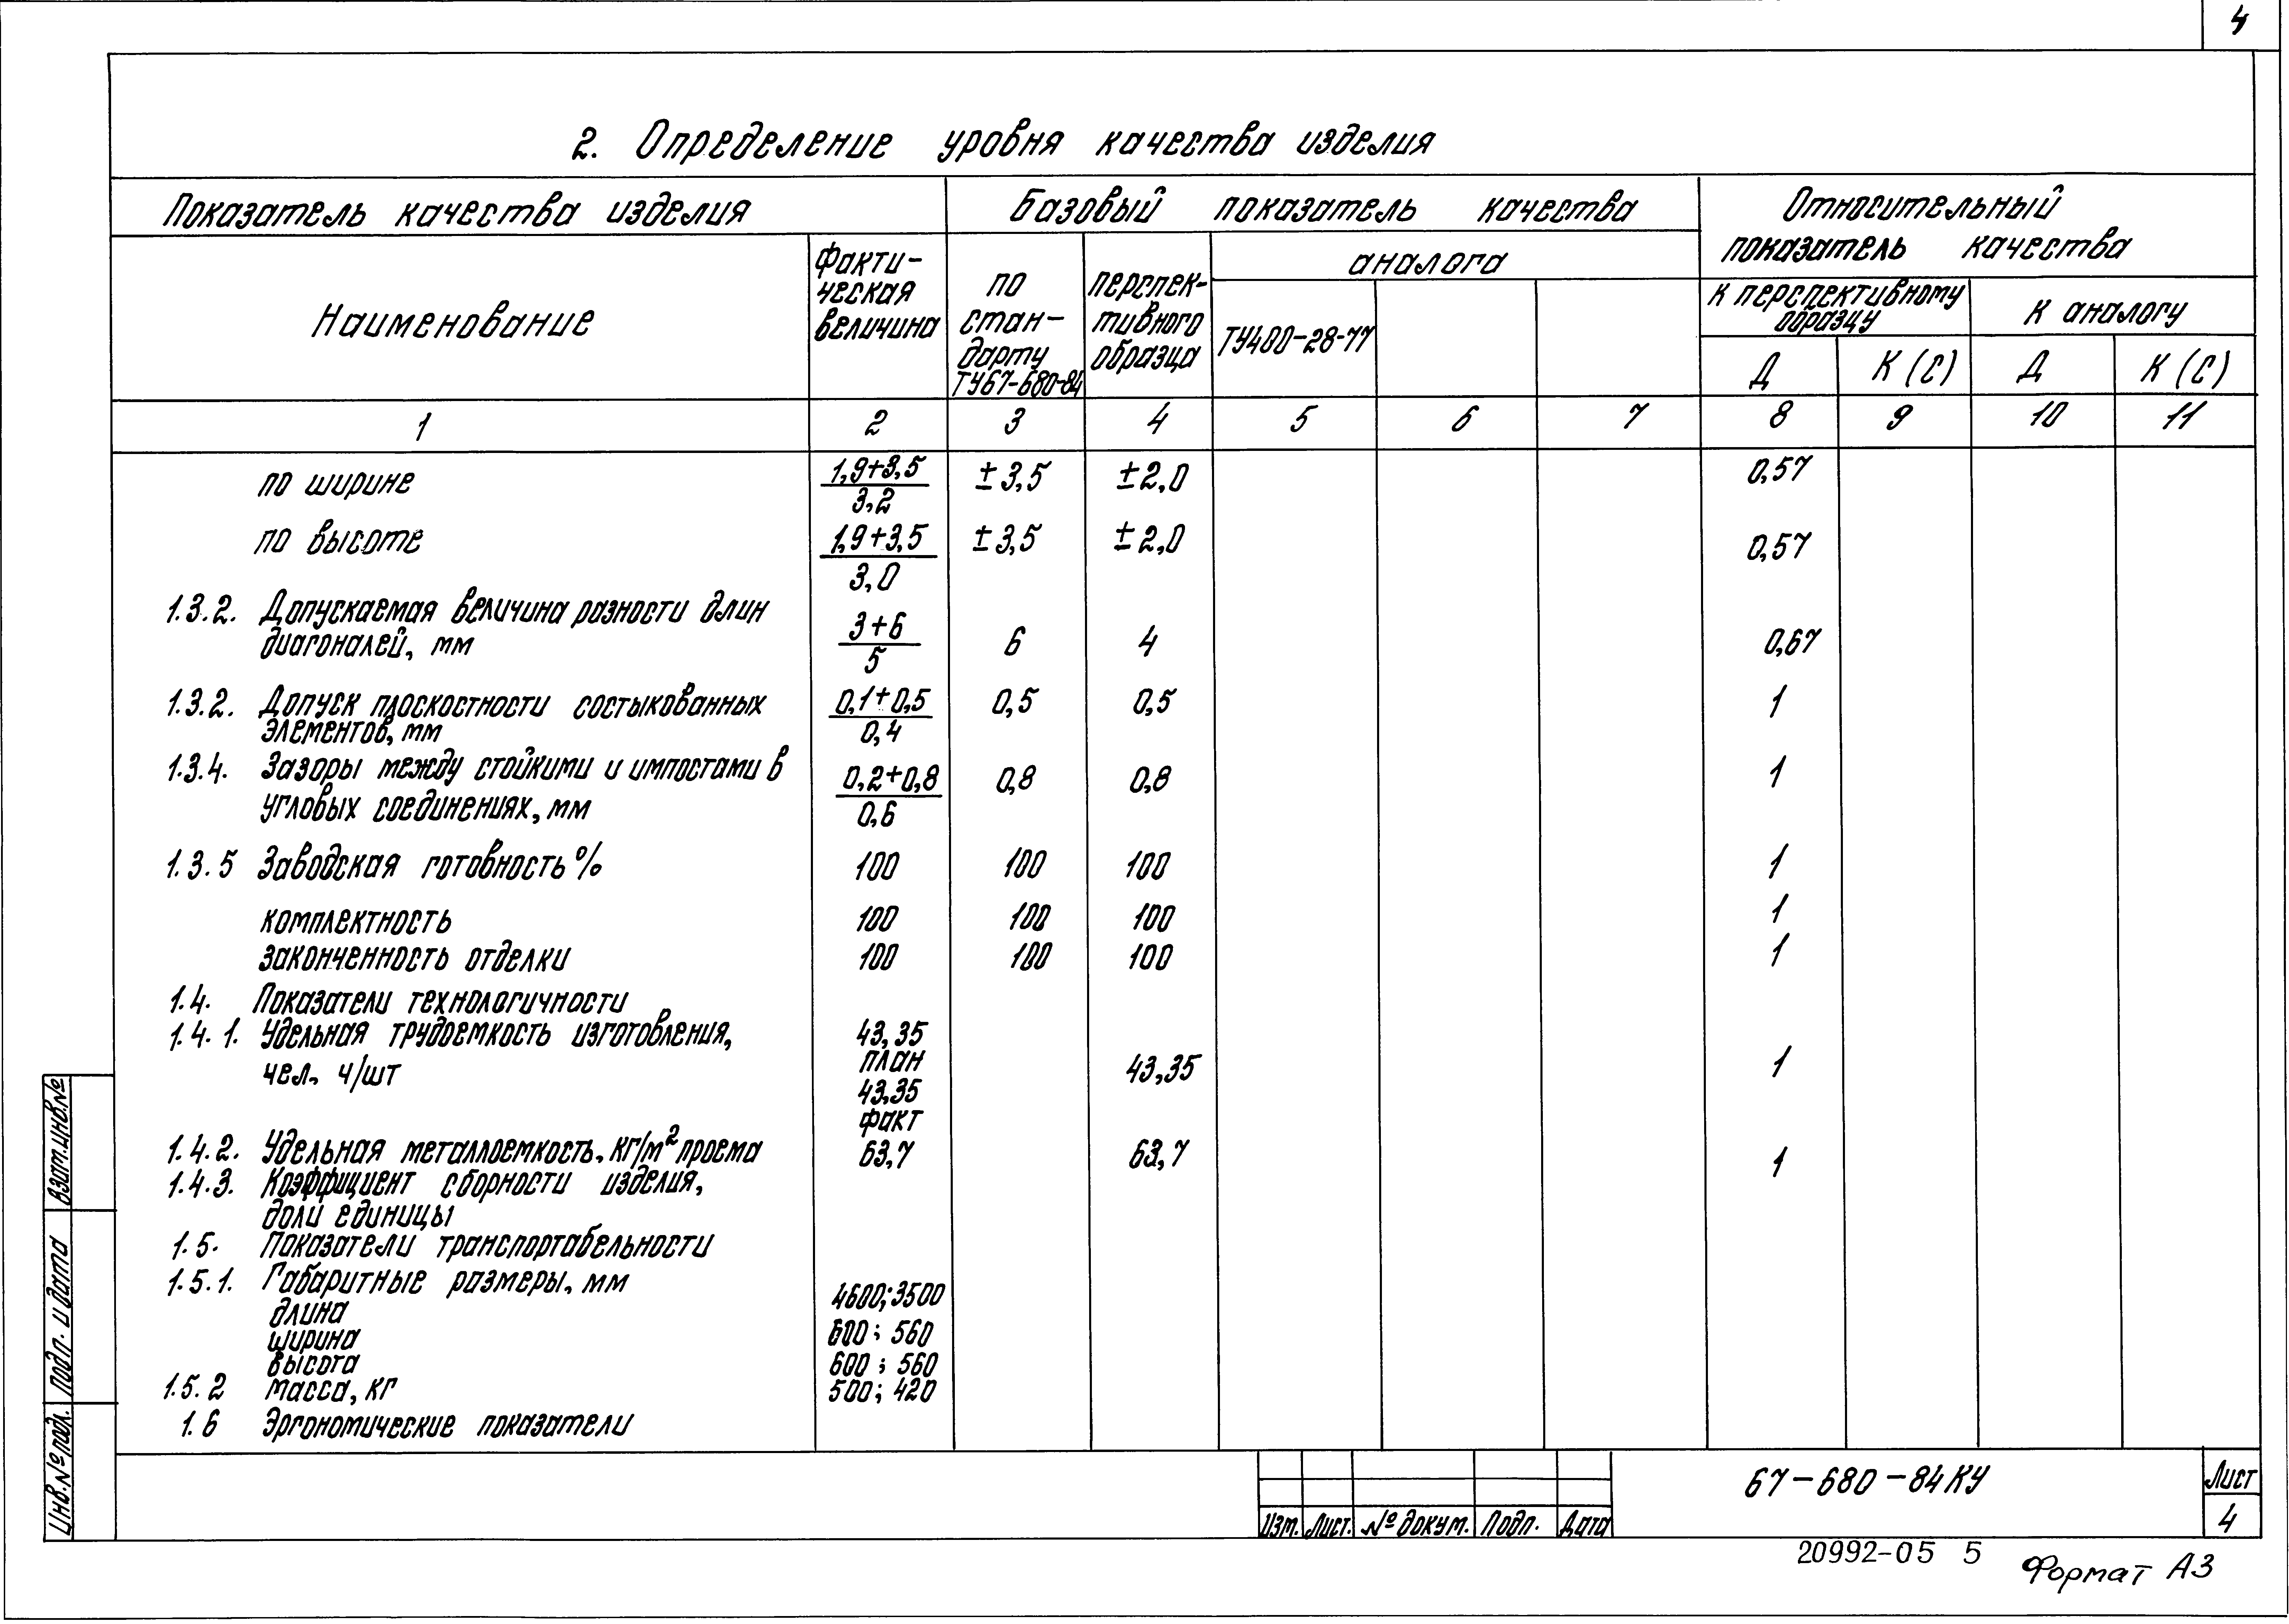 4
2. Определение уровня качества изделия
Показатель качества изделия
Базовый показатель качества
Относительный
показатель качества
Наименование
Факти-
ческая
величина
по
стан-
дарту
ТУ67-680-84
перспек-
тивного
образца
аналога
ТУ400-28-77
к перспективному
образцу
к аналогу
Д К (С) Д К (С)
1 2 3 4 5 6 7 8 9 10 11
по ширине 1,9+3,5 ±3,5 ±2,0 0,57
3,2
по высоте 1,9+3,5 ±3,5 ±2,0 0,57
3,0
1.3.2. Допускаемая величина разности длин
диагоналей, мм 3+6 6 4 0,67
5
1.3.2. Допуск плоскостности состыкованных 0,1+0,5 0,5 0,5 1
элементов, мм 0,4
1.3.4. Зазоры между стойкими и импостами в 0,2+0,8 0,8 0,8 1
угловых соединениях, мм 0,6
1.3.5 Заводская готовность % 100 100 100 1
комплектность 100 100 100 1
законченность отделки 100 100 100 1
1.4. Показатели технологичности
1.4.1. Удельная трудоемкость изготовления, 43,35
план
чел. ч/шт 43,35 1
43,35
факт
1.4.2. Удельная металлоемкость, кг/м² проема 63,7 63,7 1
1.4.3. Коэффициент сборности изделия,
доли единицы
1.5. Показатели транспортабельности
1.5.1. Габаритные размеры, мм
длина 4600; 3500
ширина 600; 560
высота 600; 560
1.5.2 масса, кг 500; 420
1.6 Эргономические показатели
Взам. инв. №
Подп. и дата
Инв. № подл.
Изм. Лист. № докум. Подп. Дата
67-680-84КУ
Лист
4
20992-05 5
Формат А3